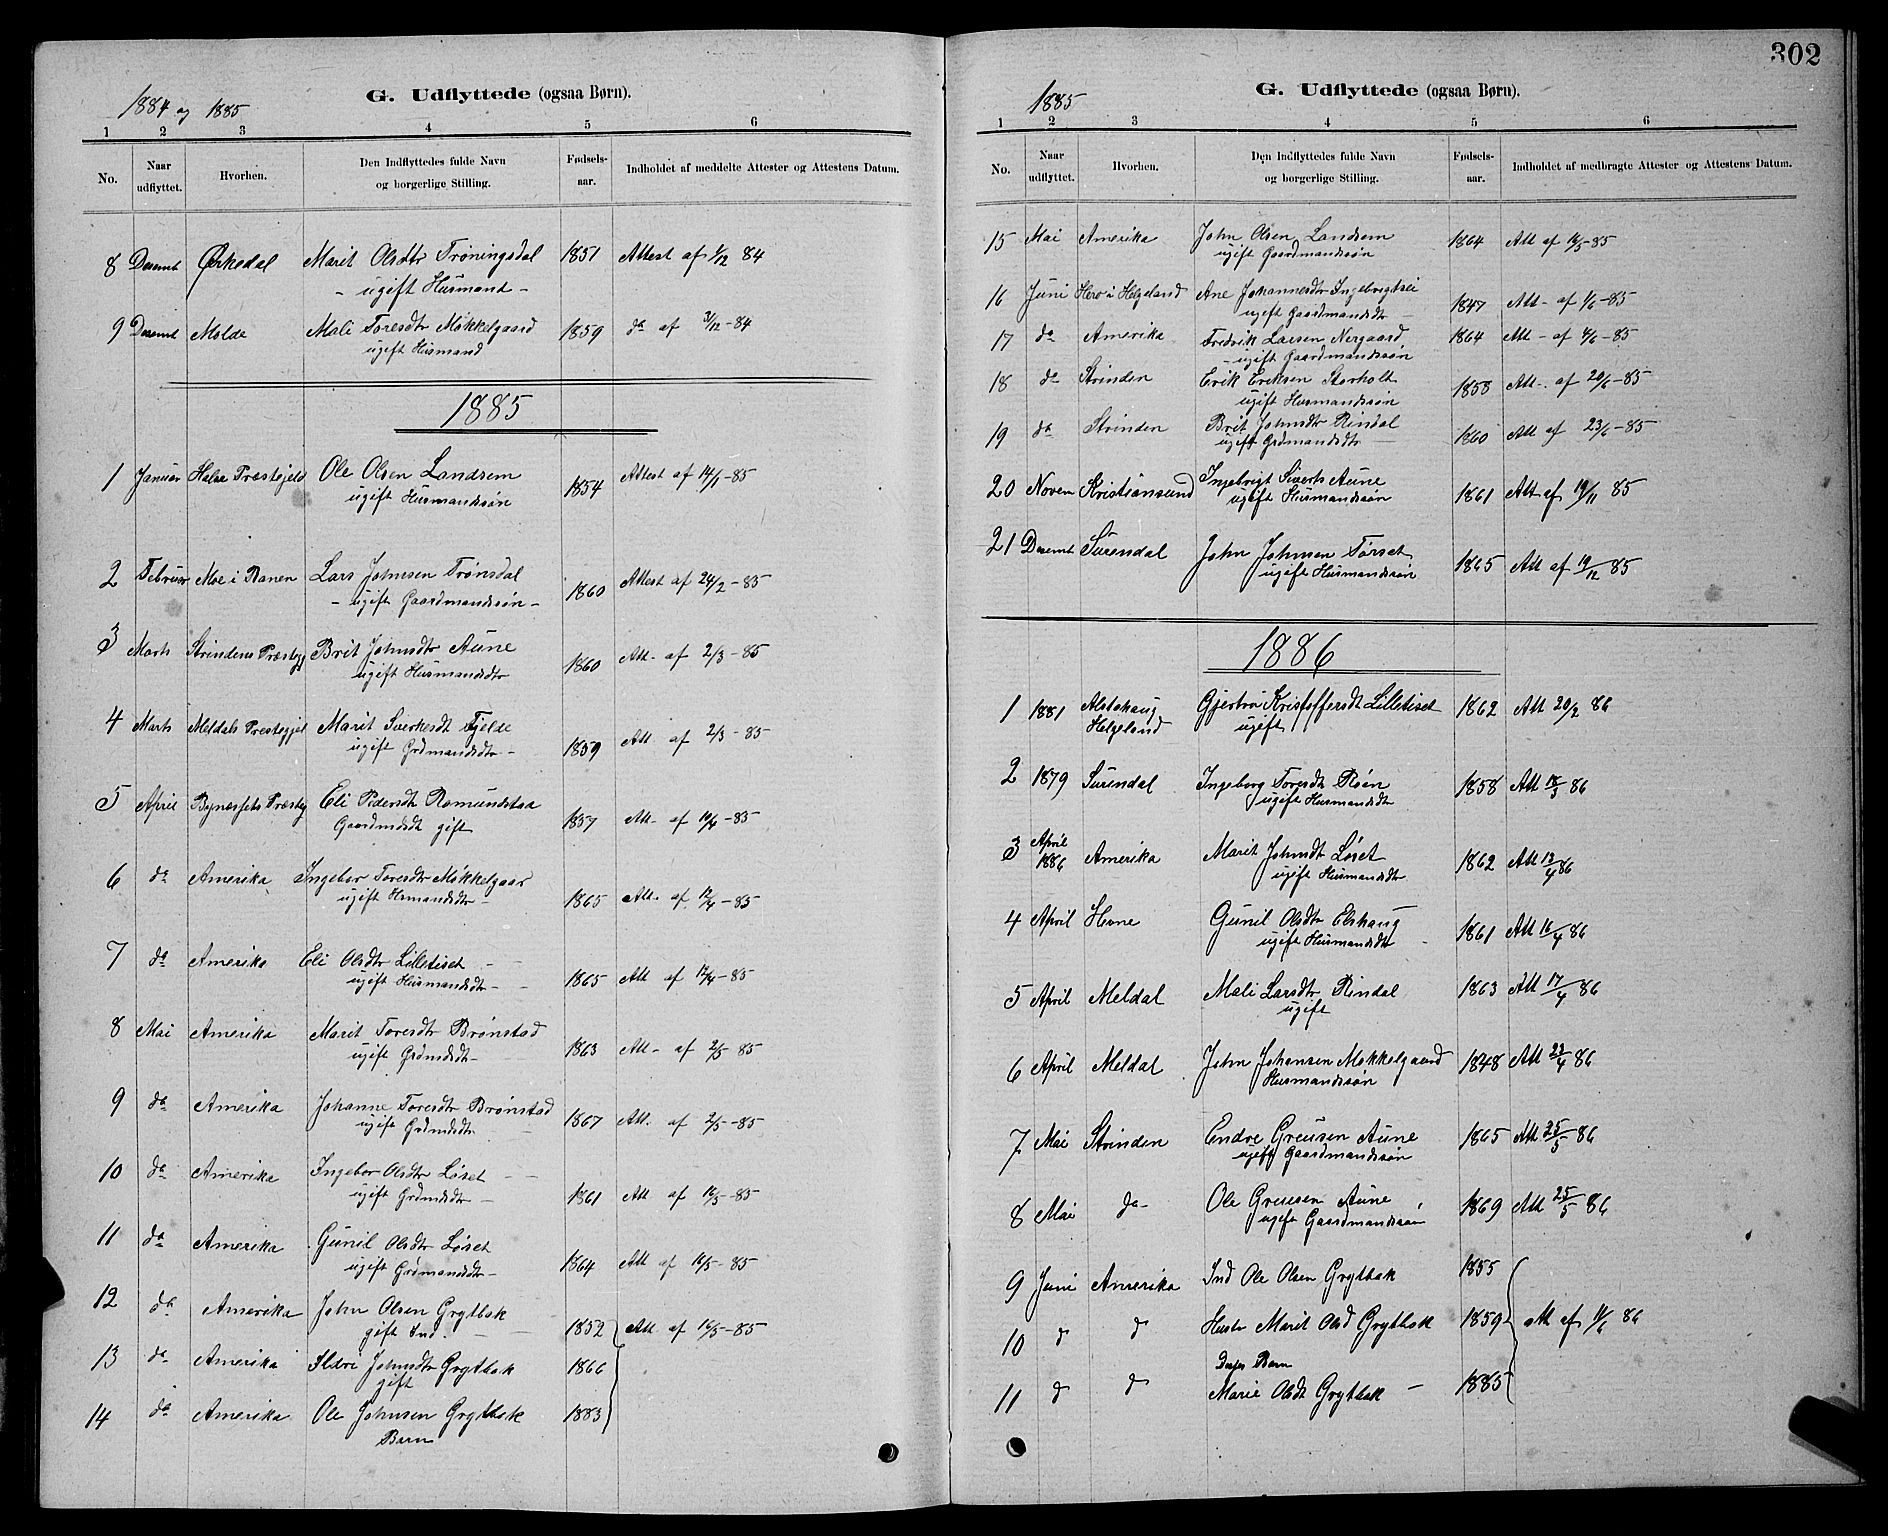 302
1884 og 1885
G. Udflyttede (ogsaa Børn).
1 2 3 4 5 6
No. Naar udflyttet. Hvorhen. Den Indflyttedes fulde Navn og borgerlige Stilling. Fødsels-aar. Indholdet af meddelte Attester og Attestens Datum.
8 Desemt Ørkedal Marit Olsdtr Trøningsdal 1851 Attest af 1/12 84
- ugift Husmand -
9 Desemt Molde Mali Toresdtr Møkkelgaard 1859 do af 3/12-84
ugift Husmand
1885
1 Januar Halsa Præstegjeld Ole Olsen Landsem 1854 Attest af 14/1-85
ugift Husmandssøn
2 Februar Moe i Ranen Lars Johnsen Trønsdal 1860 Attest af 24/2-85
- ugift Gaardmandssøn -
3 Marts Strindens Præstegj Brit Johnsdtr Aune 1860 Att- af 2/3-85
ugift Husmandsdtr
4 Marts Meldals Prestegjel Marit Sverkesdt Fjelde 1859 Att. af 2/3-85
ugift Grdmandsdtr -
5 April Bynæssets Præsteg Eli Pedersdt Romundstad 1857 Att- af 10/4-85
Gaardmdsdt gift
6 do Amerika Ingebor Toresdtr Møkkelgaar 1865 Att. af 12/4-85
ugift Hsmandsdtr -
7 do Amerika Eli Olsdtr Lilletiset 1865 Att af 12/4-85
ugift Husmandsdtr -
8 Mai Amerika Marit Toresdtr Brønstad 1863 Att- af 2/5-85
ugift Grdmdsdt -
9 do Amerika Johanne Toresdtr Brønstad 1867 Att. af 2/5-85
ugift Grdmdsdtr
10 do Amerika Ingebor Olsdtr Løset 1861 Att af 16/5-85
ugift Grdmdsdtr -
11 do Amerika Gunil Olsdtr Løset 1864 Att af 16/5-85
ugift Grdmandsdtr -
12 do Amerika John Olsen Grytbak 1852 Att. af 16/5-85
gift Ind.
13 do Amerika Sldri Johnsdtr Grytbak 1866
gift
14 do Amerika Ole Johnsen Grytbak 1883
Barn
1885
G. Udflyttede (ogsaa Børn).
1 2 3 4 5 6
No. Naar udflyttet. Hvorhen. Den Indflyttedes fulde Navn og borgerlige Stilling. Fødsels-aar. Indholdet af medbragte Attester og Attestens Datum.
15 Mai Amerika John Olsen Landsem 1864 Att af 16/5-85
ugift Gaardmandssøn
16 Juni Herø i Helgeland Ane Johannesdtr Ingebrigtsli 1847 Att- af 1/6-85
ugift Gaardmandsdtr -
17 do Amerika Fredrik Larsen Nergaard 1864 Att- af 4/6-85
- ugift Gaardmandssøn
18 do Strinden Erik Eriksen Storholt 1858 Att-. af 20/6-85
ugift Husmandssøn
19 do Strinden Brit Johnsdtr Rindal 1860 Att af 23/6-85
ugift Grdmandsdtr
20 Novem Kristiansund Ingebrigt Siverts Aune 1861 Att af 19/11 85
ugift Husmandssøn
21 Desemt Surendal John Johnsen Tørset 1865 Att af 19/12 85
ugift Husmandssøn
1886
1 1881 Alstahaug Helgeland Gjertru Kristoffersdt Lilletiset 1862 Att 20/2 86
ugift
2 1879 Surendal Ingeborg Toresdt Røen 1858 Att 18/3 86
ugift Husmandsdtr
3 April 1886 Amerika Marit Johnsdt Løset 1862 Att 13/4 86
ugift Husmandsdtr
4 April Hevne Gunil Olsdtr Elshaug 1861 Att 16/4 86
ugift Husmandsdtr
5 April Meldal Mali Larsdtr Rindal 1863 Att 17/4 86
ugift
6 April Meldal John Johansen Mokkelgaard 1848 Att 22/4 86
Husmandssøn
7 Mai Strinden Endre Greusen Aune 1865 Att 25/5 86
ugift Gaardmandssøn
8 Mai do- Ole Greusen Aune 1869 Att 25/5 86
ugift Gaardmandssøn
9 Juni Amerika Ind Ole Olsen Grytbak 1855
10 d d Hustr Marit Olsd Grytbak 1859 Att af 11/6 86
Deres Barn
11 d d Marie Olsdt Grytbak - 1885